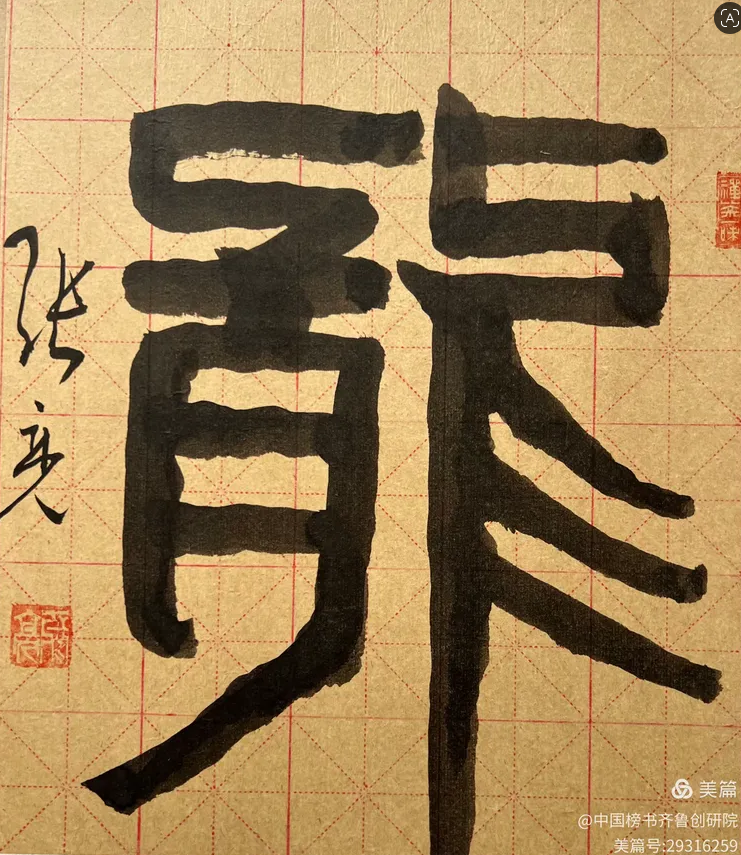 龍
张亮
禪茶一味
美篇
@中国榜书齐鲁创研院
美篇号:29316259